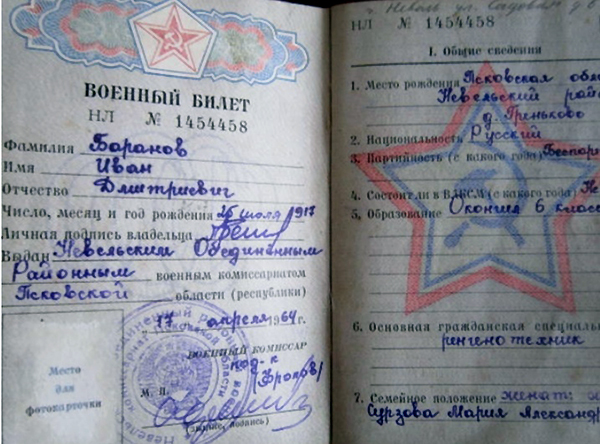 ВОЕННЫЙ БИЛЕТ
НЛ № 1454458
Фамилия Баранов
Имя Иван
Отчество Дмитриевич
Число, месяц и год рождения 25 июля 1917
Личная подпись владельца
Выдан Невельским Обединенным
Районным военным комиссариатом
Псковской области (республики)
„17 апреля 1964 г.
ВОЕННЫЙ КОМИССАР
под-к
М. П.
(звание, подпись)
Место
для
фотокарточки
г Невель ул. Садовая д 6
НЛ № 1454458
I. Общие сведения
1. Место рождения Псковская обла
Невельский рай
д. Гриньково
2. Национальность Русский
3. Партийность (с какого года) Беспар
4. Состоит ли в ВЛКСМ (с какого года) Не
5. Образование Окончил 6 класс
6. Основная гражданская специаль
рентгено техник
7. Семейное положение женат:
Сурзова Мария Александр